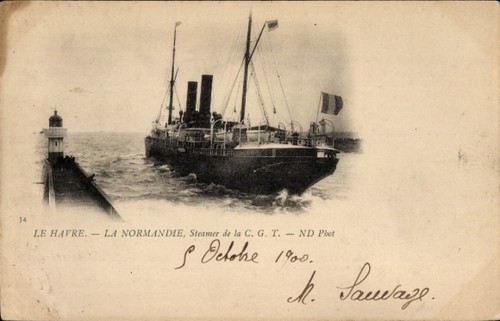 34
LE HAVRE. — LA NORMANDIE, Steamer de la C. G. T. — ND Phot
5 Octobre 1900.
M. Sauvage.